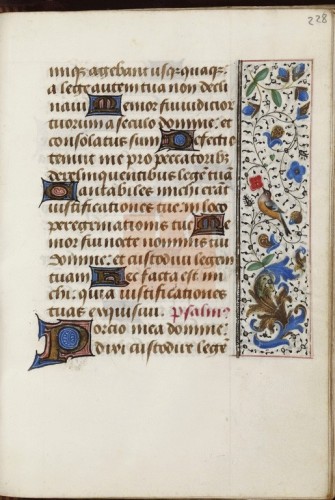 228
nique agebant usq quaq
a lege autem tua non decli
navi Memor fui iudicior
tuorum a seculo domine: et
consolatus sum Defectio
tenuit me pro peccatorib
derelinquentibus legem tuā
Cantabiles michi erāt
iustificationes tue: in loco
peregrinationis tue Me
mor fui nocte nominis tui
domine: et custodivi legem
tuam Hec facta est mi
chi: quia iustificationes
tuas exquisivi. Psalm
Portio mea domine:
dixi custodire legē